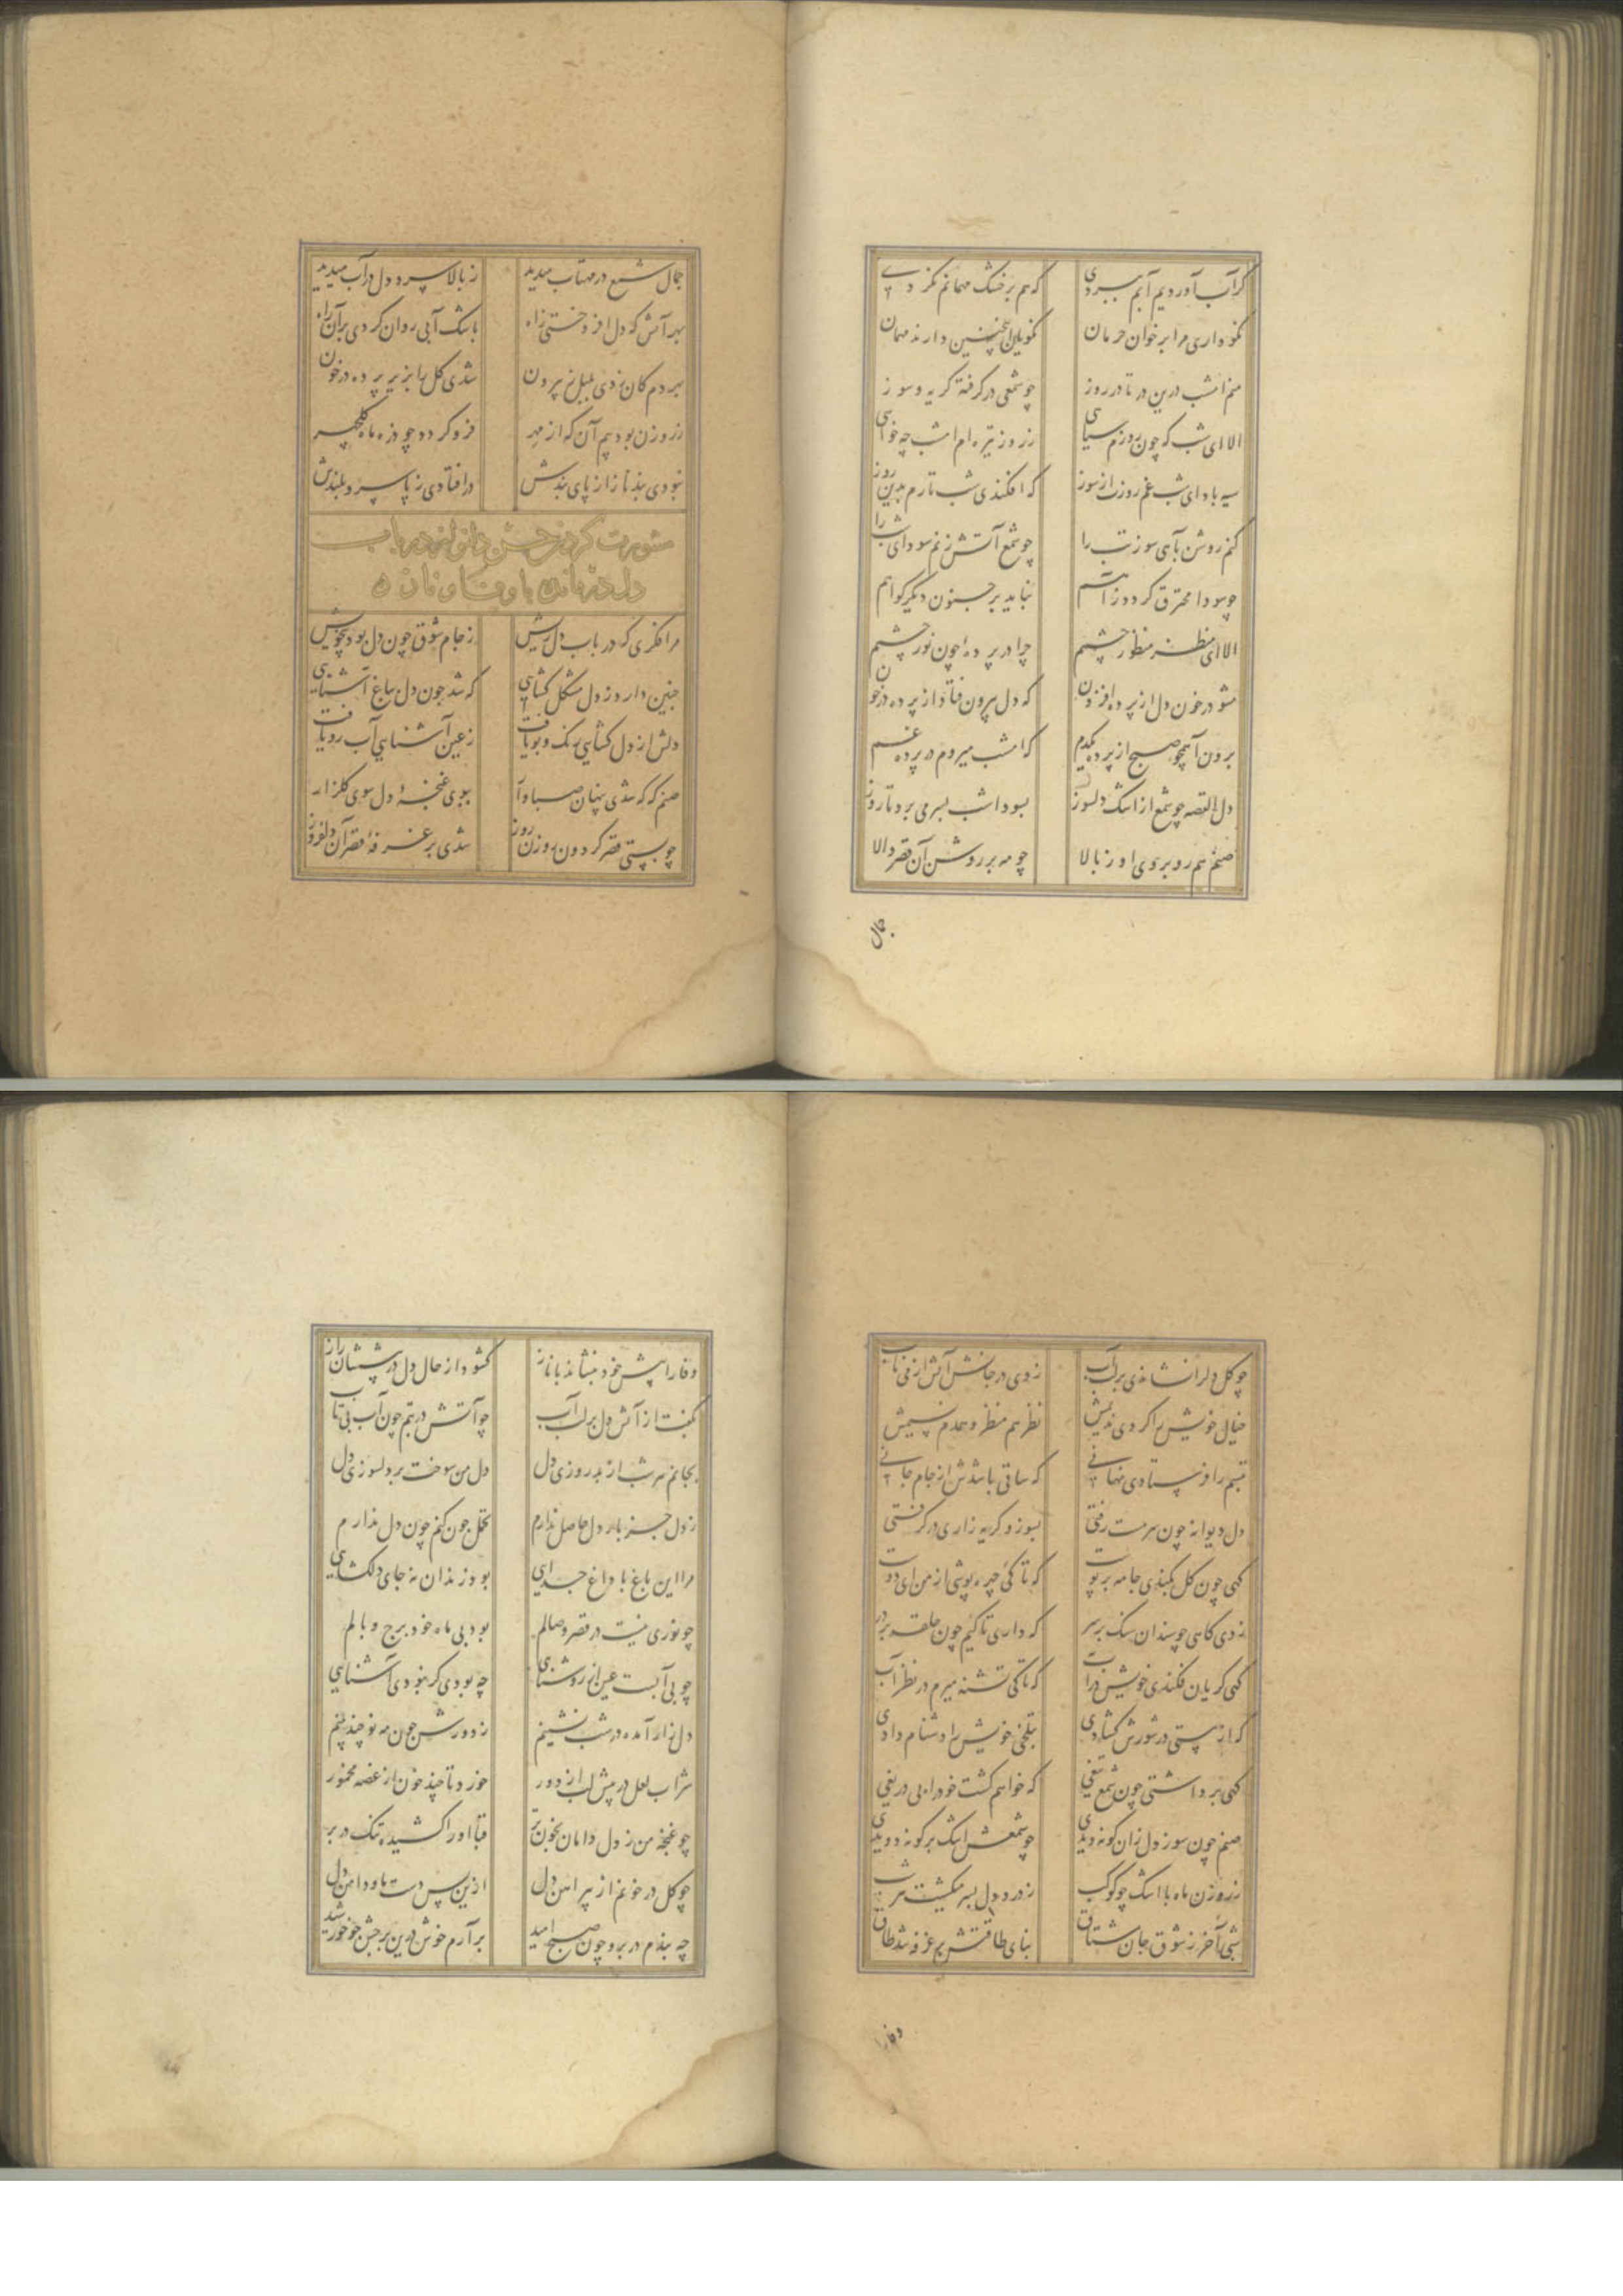 گر آب آوردیم آبم ببردی که هم بر خشک مهمانم نکردی
نمو داری مرا بر خوان حرمان نکویان اینچنین دارند مهمان
منم امشب درین در تا در روز چو شمعی در گرفته گریه و سوز
الا ای شب که چون روزم سیاهی ز روز تیره‌ام امشب چه خواهی
سیه باد ای شب غم روزت از سوز که افکندی شب تارم بدین روز
کنم روشن بآهی سوز تب را چو شمع آتش زنم سودای شب را
چو سودا محترق گردد ز آهم نباید بر جنون دیگر گواهم
الا ای منظر منظور چشمم چرا در پرده‌ای چون نور چشمم
مشو در خون دل از پرده افزون که دل بیرون فتاد از پرده در خون
برون آ همچو صبح از پرده یکدم که امشب میروم در پرده غم
دل القصه چو شمع از اشک دلسوز بسودا شب بسر می برد تا روز
صنم هم رو بروی او ز بالا چو مه بر روشن آن قصر والا
جمال
جمال شمع در مهتاب میدید ز بالا سرو دل در آب میدید
بهر آتش که دل افروختی زاه باشک آبی روان کردی بر آن راه
بهر دم کان زدی بلبل ز بیرون شدی گل را بزیر پرده در خون
ز روزن بود بیم آن که از مهر فرو گردد چو ذره ماه گلچهر
نبودی بند ناز ار پای بندش در افتادی ز پا سرو بلندش
مشورت کردن حسن دلنواز در باب
دل درمانده با وفا و ناز
مرا فکری که در باب دل ریش ز جام شوق چون دل بود بیخویش
چنین دارد ز دل مشکل گشایی که شد چون دل بباغ آشنایی
دلش از دل گشایی رنگ و بو یافت ز عین آشنایی آب رو یافت
صنم گه گه شدی پنهان صبا وار ببوی غنچهٔ دل سوی گلزار
چو بستی قصر گردون روزن روز شدی بر غرفهٔ قصر آن دلفروز
چو گل دلرا نشاندی بر لب آب زدی در جانش آتش از می ناب
خیال خویش را کردی ندیمش نظر هم منظر و همدم نسیمش
تبسم را فرستادی نهانی که ساقی باشدش از جام جانی
دل دیوانه چون سرمست رفتی بسوز و گریه زاری در گرفتی
گهی چون گل بکندی جامه بر پوست که تا کی چهره پوشی از من ای دوست
زدی گاهی چو سندان سنگ بر سر که داری تا کیم چون حلقه بر در
گهی گریان فکندی خویش در آب که تا کی تشنه میرم در نظر آب
گه از پستی در شورش گشادی بتلخی خویش را دشنام دادی
گهی برداشتی چون شمع تیغی که خواهم کشت خود را بی دریغی
صنم چون سوز دل زان گونه دیدی چو شمعش اشک بر گونه دویدی
ز روزن ماه با اشک چو کوکب ز درد دل بسر میگشت هر شب
شبی آخر ز شوق جان مشتاق بنای طاقتش بر غرفه شد طاق
وفا را
وفا را پیش خود بنشاند با ناز گشود از حال دل در پیششان راز
بگفت از آتش دل بر لب آب چو آتش در تبم چون آب بی تاب
بجانم هر شب از بد روزی دل دل من سوخت بر دلسوزی دل
ز دل جز بار دل حاصل ندارم تحمل چون کنم چون دل ندارم
مرا این باغ با داغ جدایی بود زندان نه جای دلگشایی
چو نوری نیست در قصر وصالم بود بی ماه خود برج وبالم
چو بی آبست عین از روشنایی چه بودی گر نبودی آشنایی
دل زار آمده در شب نشینم ز دورش چون مه نو چند بینم
شراب لعل در پیش لب از دور خورد تا چند خون از غصه مخمور
چو غنچه من ز دل دامان بخون تر قبا او را کشیده تنگ در بر
چو گل در خونم از پیراهن دل ازین پس دست ما و دامن دل
چه بندم در برو چون صبح امید برآرم خوش درین برجش چو خورشید